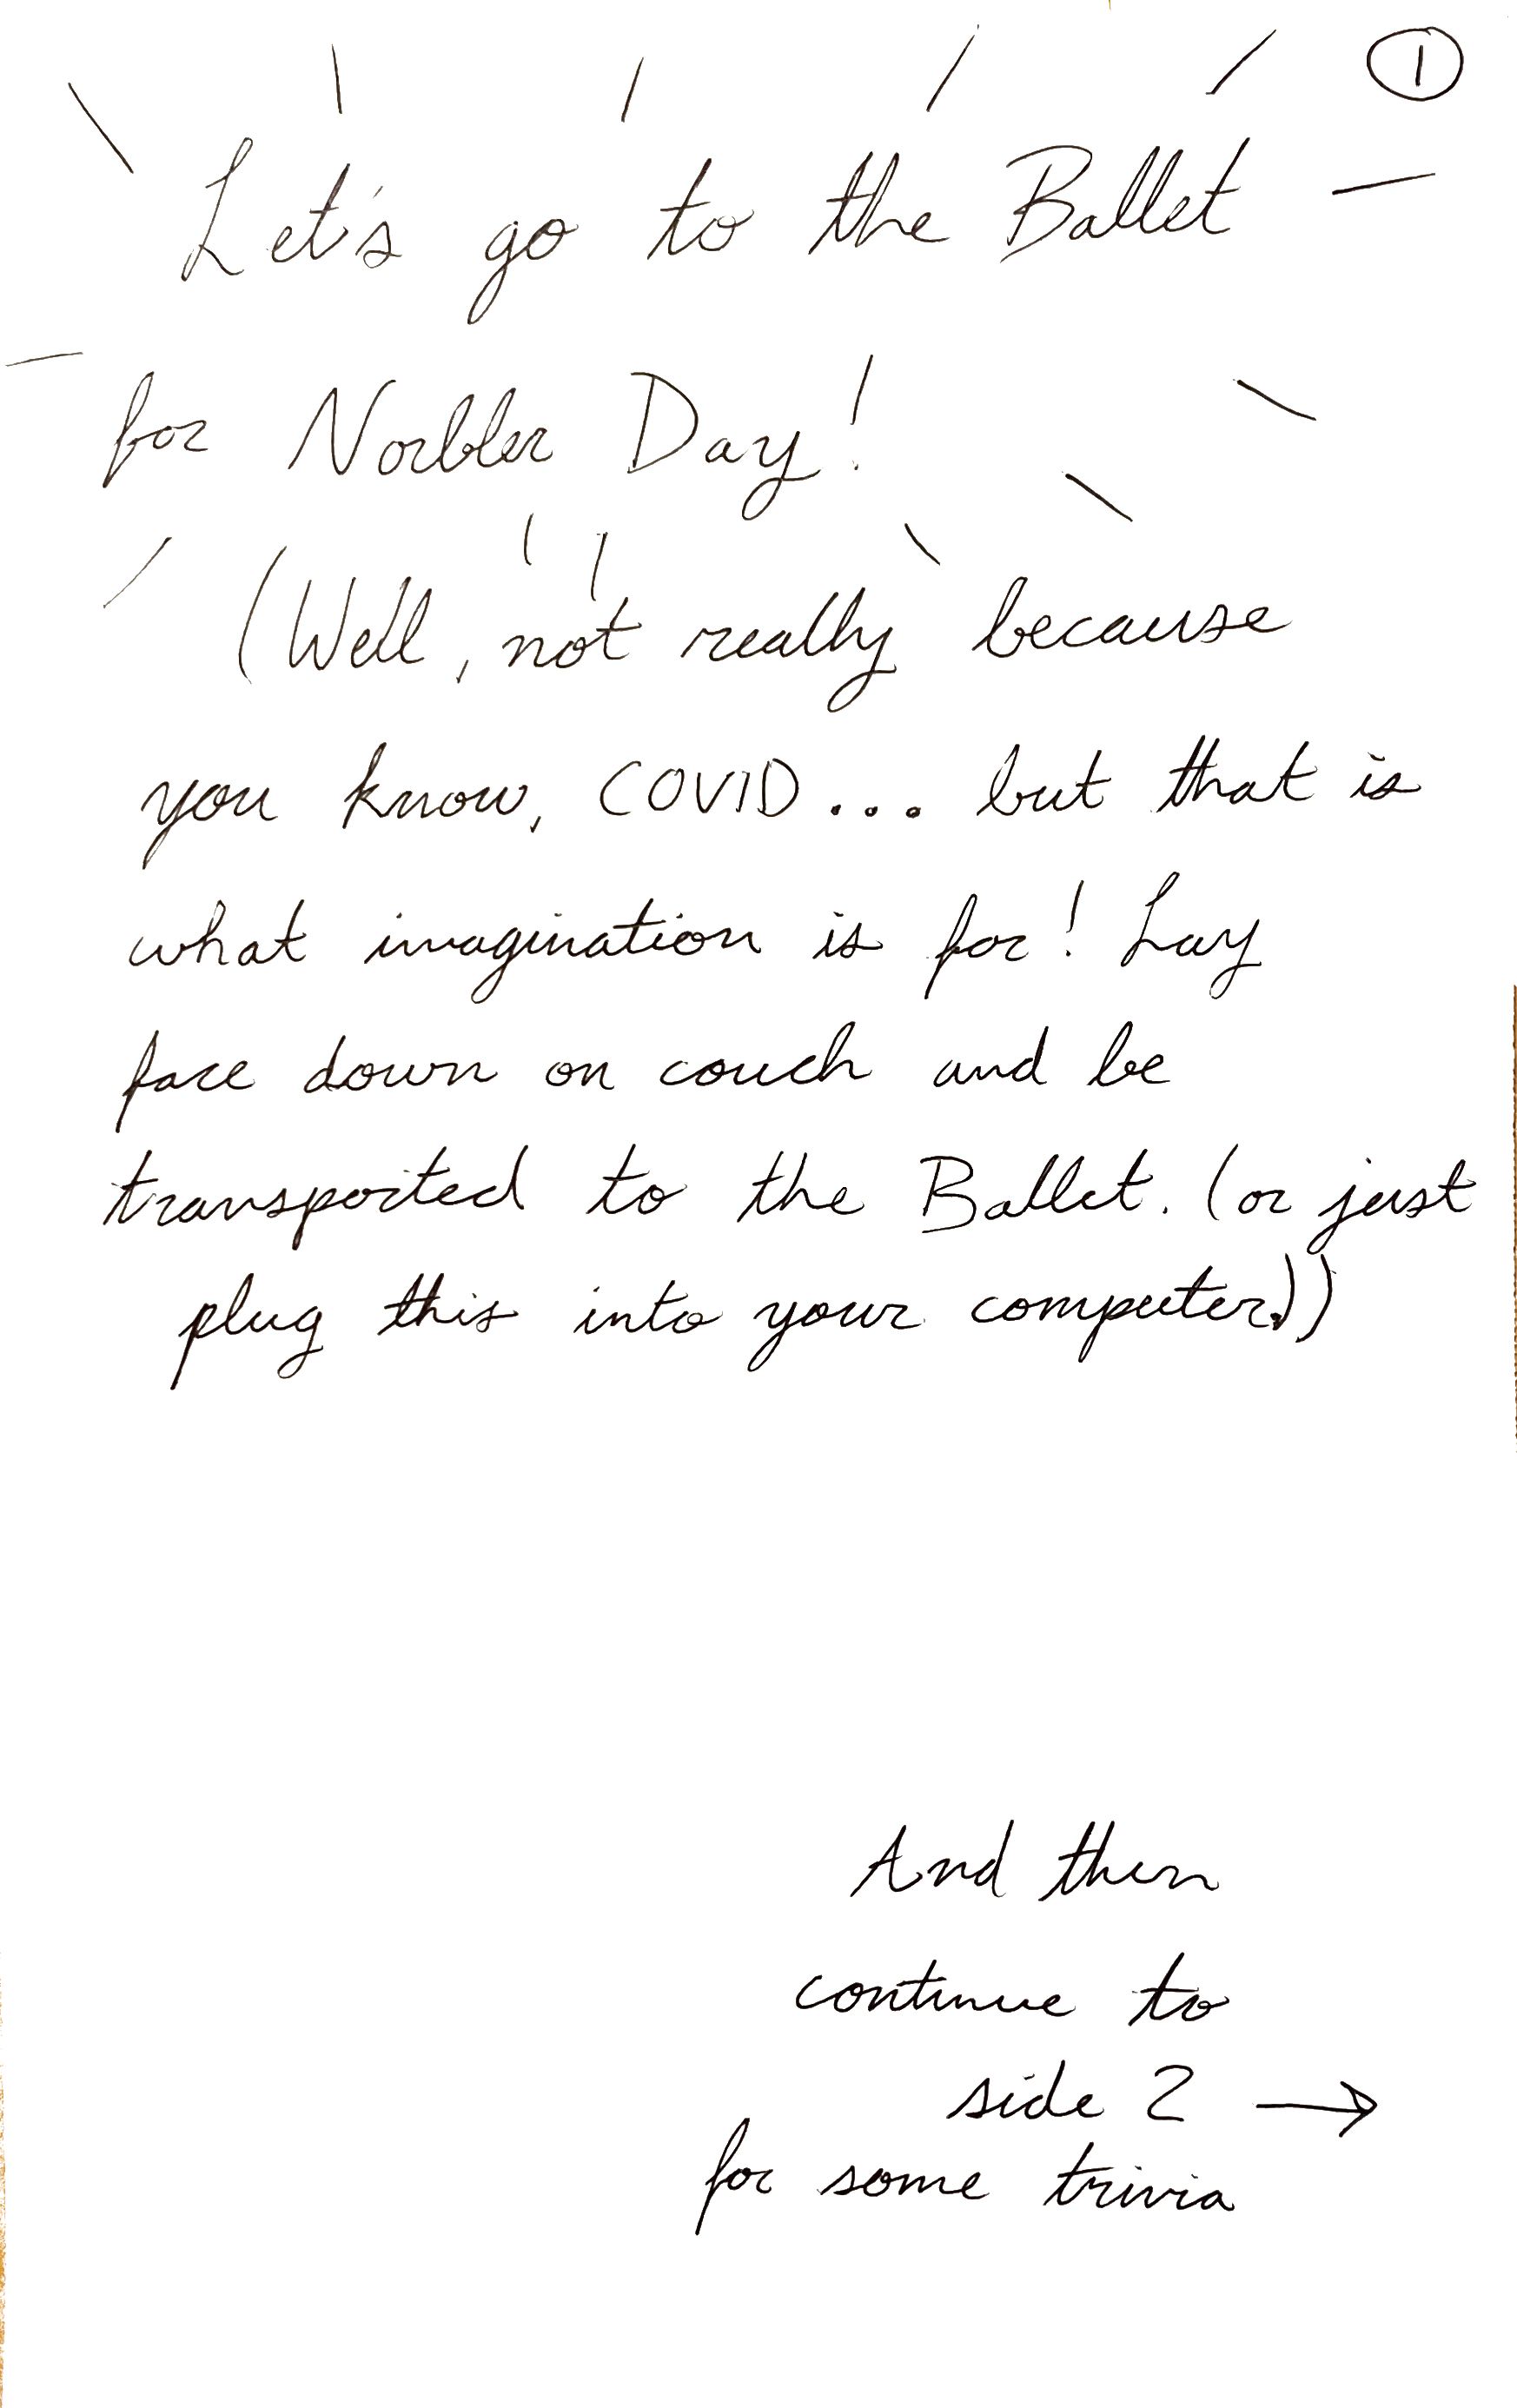 ①
Let's go to the Ballet
for Norbler Day!
(Well, not really because
you know, COVID... but that is
what imagination is for! Lay
face down on couch and be
transported to the Ballet. (or just
plug this into your computer.))
And then
continue to
side 2 →
for some trivia